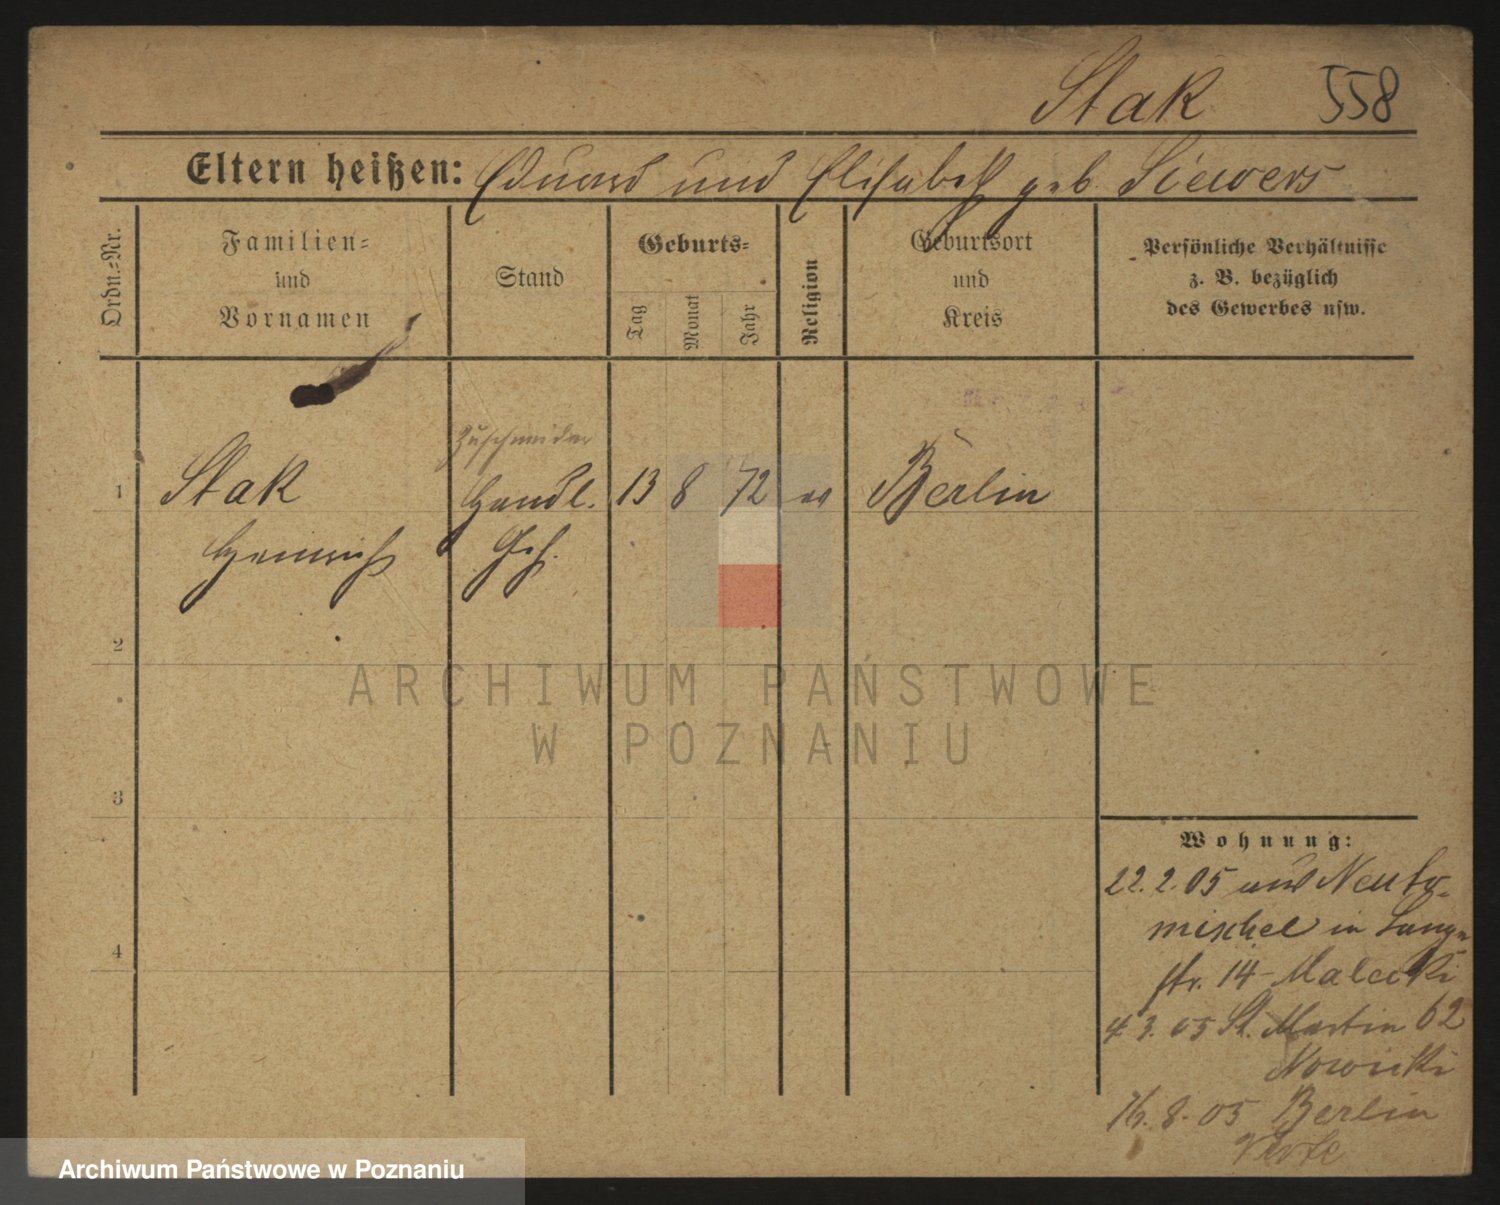 Stak 558
Eltern heißen: Eduard und Elisabeth geb. Siewers
Ordn.=Nr.
Familien=
und
Vornamen
Stand
Geburts=
Tag
Monat
Jahr
Religion
Geburtsort
und
Kreis
Persönliche Verhältnisse
z. B. bezüglich
des Gewerbes usw.
Zuschneider
1 Stak Handl. 13 8 72 ev Berlin
Heinrich Geh.
2
3
4
Wohnung:
22. 2. 05 aus Neuto-
mischel in Lange
str. 14 - Malecki
4. 3. 05 St. Martin 62
Nowicki
16. 8. 05 Berlin
ARCHIWUM PAŃSTWOWE
W POZNANIU
Archiwum Państwowe w Poznaniu